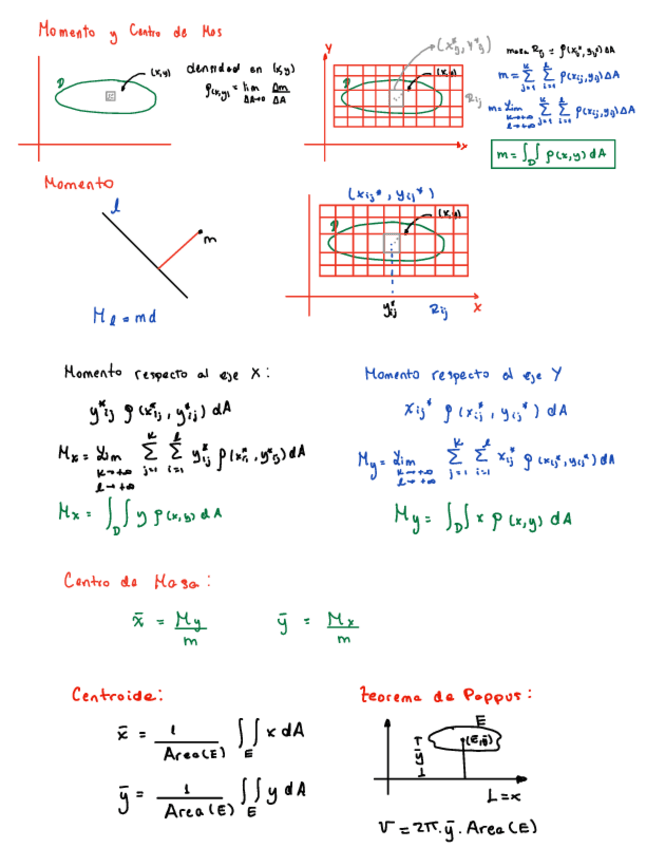 Momento y Centro de Mas
D
(x,y)
densidad en (x,y)
ρ(x,y) = lim Δm/ΔA
ΔA→0
Y
(x*ij, y*ij)
D
(x,y)
Rij
x
masa Rij = ρ(x*ij, yij) ΔA
m = Σ(j=1, k) Σ(i=1, l) ρ(xij, yij) ΔA
m = Lim(k→+∞, l→+∞) Σ(j=1, k) Σ(i=1, l) ρ(xij, yij) ΔA
m = ∫∫_D ρ(x,y) dA
Momento
l
m
M_l = md
(xij*, yij*)
D
(x,y)
y*ij
Rij
x
Momento respecto al eje X:
y*ij ρ(x*ij, y*ij) dA
Mx = Lim(k→+∞, l→+∞) Σ(j=1, k) Σ(i=1, l) y*ij ρ(x*ij, y*ij) dA
Mx = ∫∫_D y ρ(x,y) dA
Momento respecto al eje Y
xij* ρ(xij*, yij*) dA
My = Lim(k→+∞, l→+∞) Σ(j=1, k) Σ(i=1, l) xij* ρ(xij*, yij*) dA
My = ∫∫_D x ρ(x,y) dA
Centro de Masa:
x̄ = My/m
ȳ = Mx/m
Centroide:
x̄ = 1/Area(E) ∫∫_E x dA
ȳ = 1/Area(E) ∫∫_E y dA
Teorema de Pappus:
E
(x̄,ȳ)
ȳ
L=x
V = 2π.ȳ. Area(E)